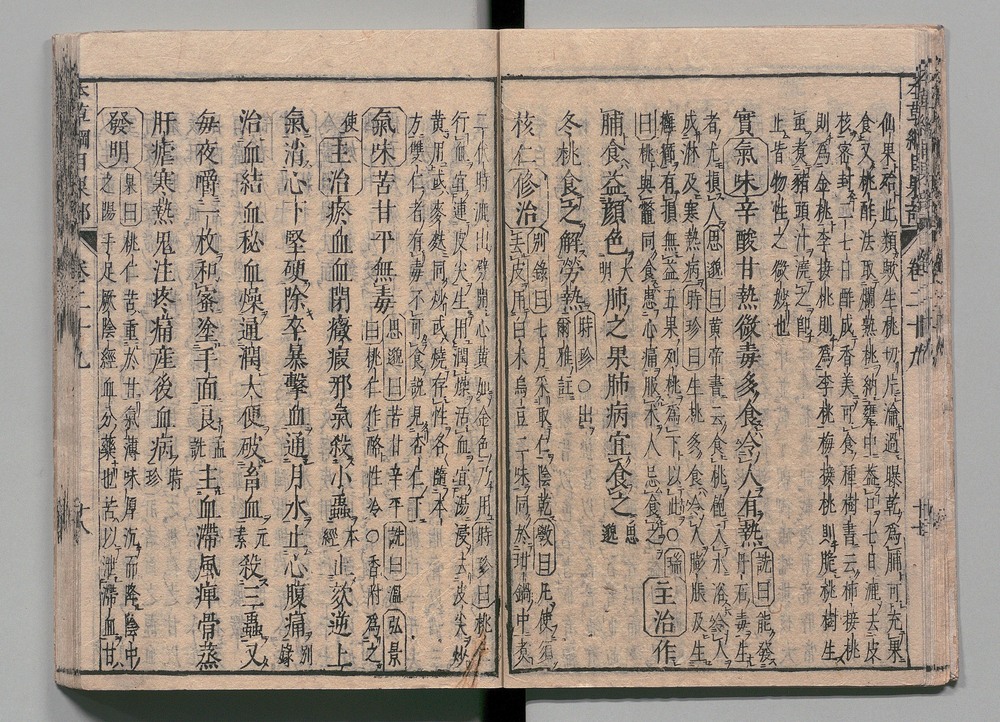 仙果殆此類歟生桃切片瀹過曝乾為脯可充果
食又桃酢法取爛熟桃納甕中蓋口七日漉去皮
核密封二七日酢成香美可食種樹書云柿接桃
則為金桃李接桃則為李桃梅接桃則脆桃樹生
虫煮猪頭汁澆之即
止皆物性之微妙也
實氣味辛酸甘熱微毒多食令人有熱
詵曰能發
丹石毒生
者尤損人思邈曰黄帝書云食桃飽入水浴令人
成淋及寒熱病時珍曰生桃多食令人膨脹及生
癰癤有損無益五果列桃為下以此○瑞
曰桃與鼈同食患心痛服朮人忌食之
主治作
脯食益顔色
大
明
肺之果肺病宜食之
思
邈
冬桃食之解勞熱
時珍○出
爾雅註
核仁修治
别錄曰七月采取仁陰乾斆曰凡使須
去皮用白朮烏豆二味同於坩鍋中煮
二伏時漉出劈開心黄如金色乃用時珍曰桃
行血宜連皮尖生用潤燥活血宜湯浸去皮尖炒
黄用或麥麩同炒或燒存性各隨本
方雙仁者有毒不可食說見杏仁下
氣味苦甘平無毒
思邈曰苦甘辛平詵曰温弘景
曰桃仁作酪性冷○香附為之
使
主治瘀血血閉癥瘕邪氣殺小蟲
本
經
止欬逆上
氣消心下堅硬除卒暴擊血通月水止心腹痛
别
錄
治血結血秘血燥通潤大便破畜血
元
素
殺三蟲又
每夜嚼一枚和蜜塗手面良
孟
詵
主血滯風痺骨蒸
肝瘧寒熱鬼注疼痛産後血病
時
珍
發明
杲曰桃仁苦重於甘氣薄味厚沉而降陰中
之陽手足厥陰經血分藥也苦以泄滯血甘
本草綱目果部
卷二十九
十七
十八